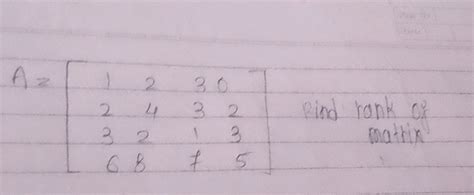 A = 1 2 3 0
2 4 3 2 find rank of
3 2 1 3 matrix
6 8 7 5